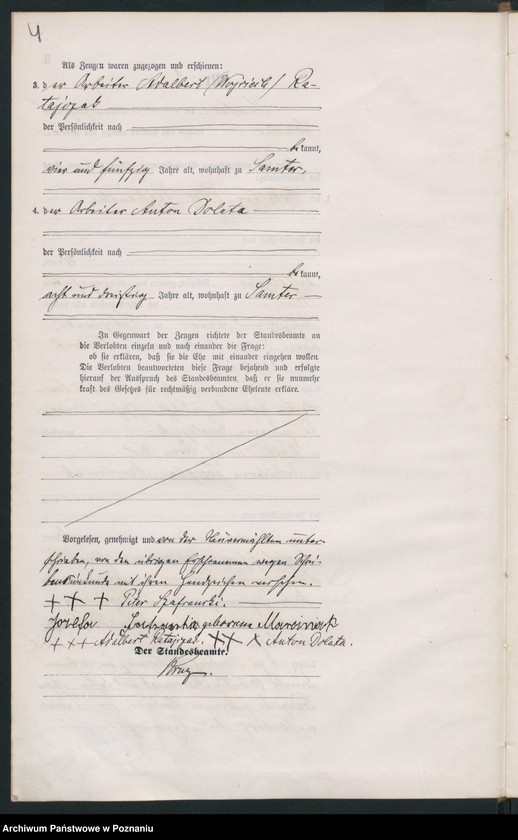 4
Als Zeugen waren zugezogen und erschienen:
3. der Arbeiter Adalbert (Wojciech) Ra-
tajczak
der Persönlichkeit nach
bekannt,
vier und fünfzig Jahre alt, wohnhaft zu Samter,
4. der Arbeiter Anton Dolata
der Persönlichkeit nach
bekannt,
acht und dreißig Jahre alt, wohnhaft zu Samter
In Gegenwart der Zeugen richtete der Standesbeamte an
die Verlobten einzeln und nach einander die Frage:
ob sie erklären, daß sie die Ehe mit einander eingehen wollen.
Die Verlobten beantworteten diese Frage bejahend und erfolgte
hierauf der Ausspruch des Standesbeamten, daß er sie nunmehr
kraft des Gesetzes für rechtmäßig verbundene Eheleute erkläre.
Vorgelesen, genehmigt und von der Neuvermählten unter-
schrieben, von den übrigen Erschienenen wegen Schrei-
bensunkunde mit ihren Handzeichen versehen.
+++ Peter Szafranski.
geborene
+++ Adalbert Ratajczak. +++ Anton Dolata.
Der Standesbeamte.